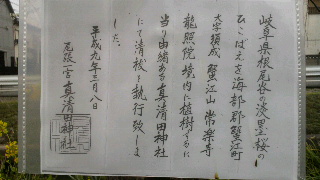 岐阜県根尾谷の淡墨桜の
ひこばえを海部郡蟹江町
大字須成 蟹江山常楽寺
龍照院境内に植樹するに
当り由緒ある真清田神社
にて清祓を執行致しま
した。
平成九年三月八日
尾張一宮真清田神社